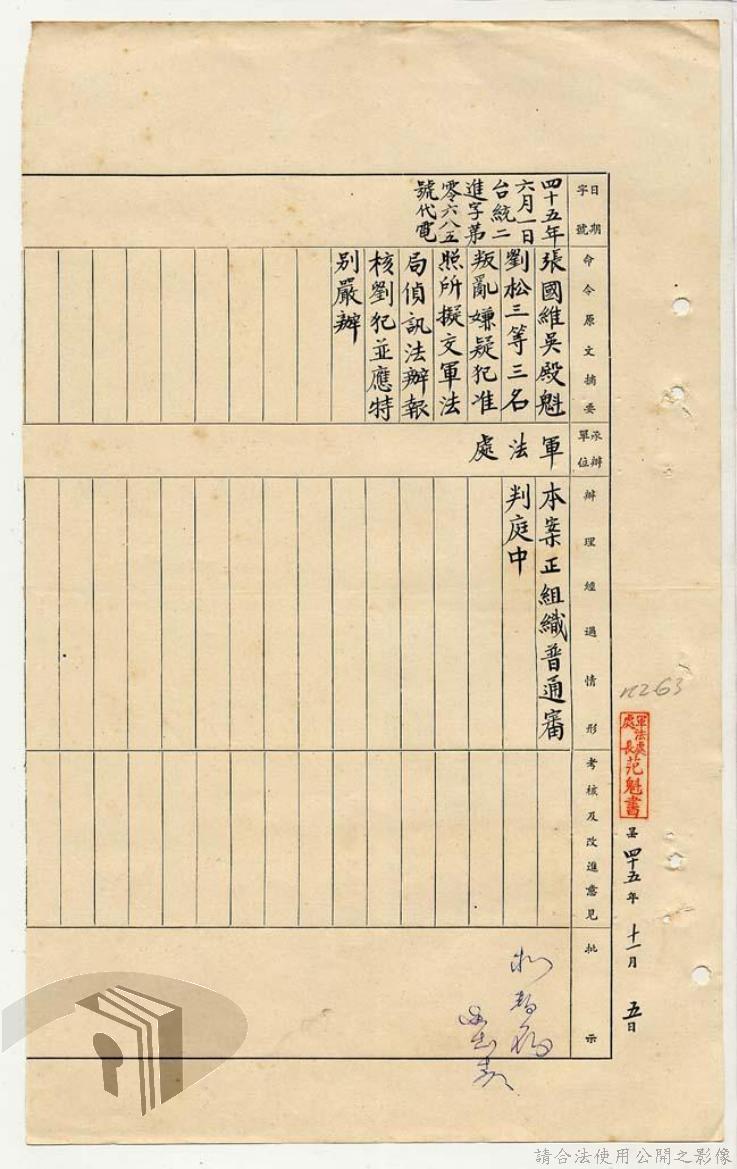 nz263
軍法處處長范魁書
呈 四十五年 十一月 五日
日期字號
四十五年
六月一日
台統二
進字第
零六八五
號代電
命令原文摘要
張國維吳殿魁
劉松三等三名
叛亂嫌疑犯准
照所擬交軍法
局偵訊法辦報
核劉犯並應特
別嚴辦
承辦單位
軍法處
辦理經過情形
本案正組織普通審
判庭中
考核及改進意見
批示
請合法使用公開之影像